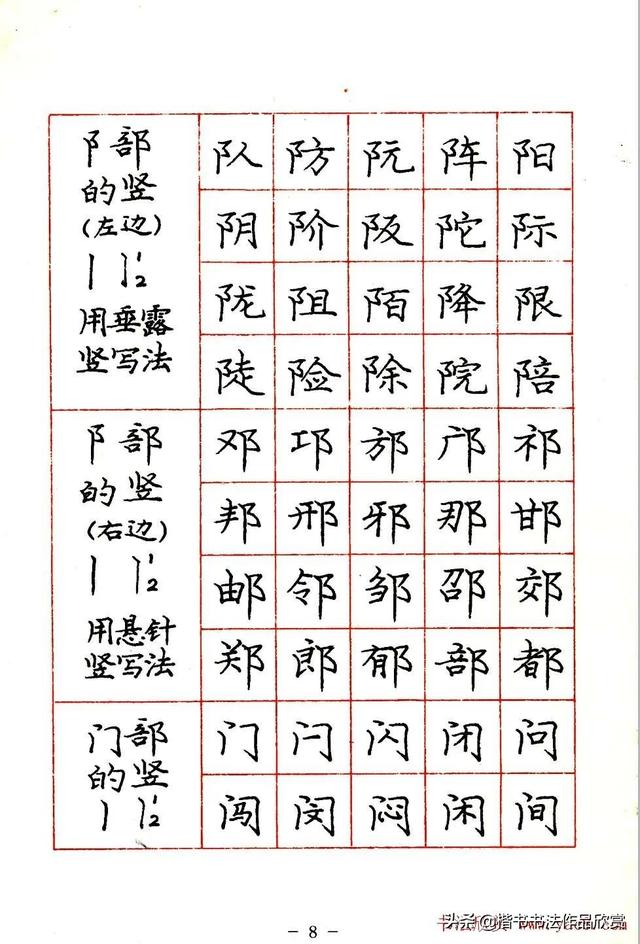 阝部
的竖
(左边)
丨 丨½
用垂露
竖写法
队 防 阮 阵 阳
阴 阶 阪 陀 际
陇 阻 陌 降 限
陡 险 除 院 陪
阝部
的竖
(右边)
丨 丨½
用悬针
竖写法
邓 邛 邡 邝 祁
邦 邢 邪 那 邯
邮 邻 邹 邵 郊
郑 郎 郁 部 都
门部
的竖
丨 丨½
门 闩 闪 闭 问
闯 闵 闷 闲 间
头条@楷书书法作品欣赏
- 8 -